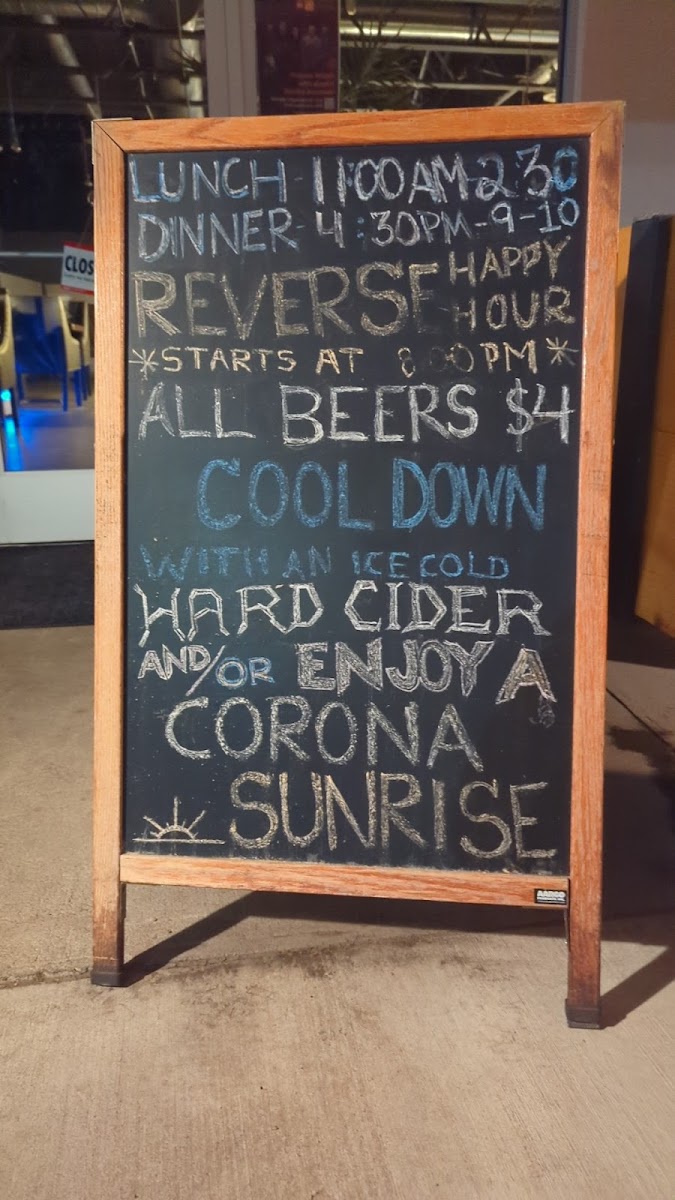 LUNCH - 11:00AM-2:30
DINNER- 4:30PM-9-10
REVERSE HAPPY HOUR
*STARTS AT 8:00PM*
ALL BEERS $4
COOL DOWN
WITH AN ICE COLD
HARD CIDER
AND/OR ENJOY A
CORONA
SUNRISE
CLOS
AARCO